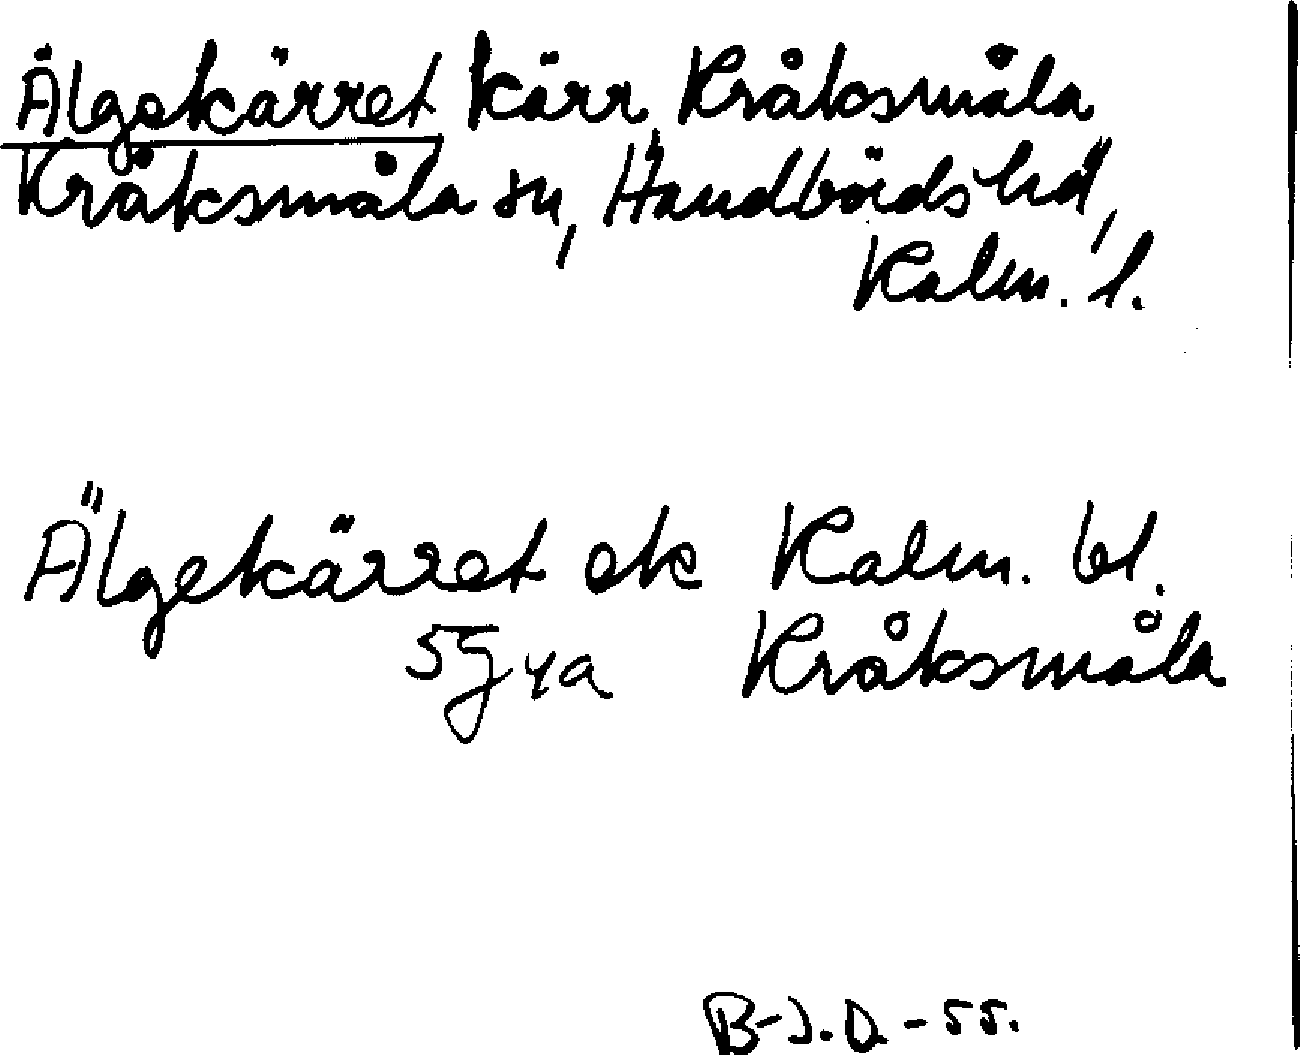 Älgekärret kärr Kråksmåla
Kråksmåla sn, Handbörds hd,
Kalm. l.
Älgekärret ek Kalm. bl.
5G4a Kråksmåla
B-J.D.-55.